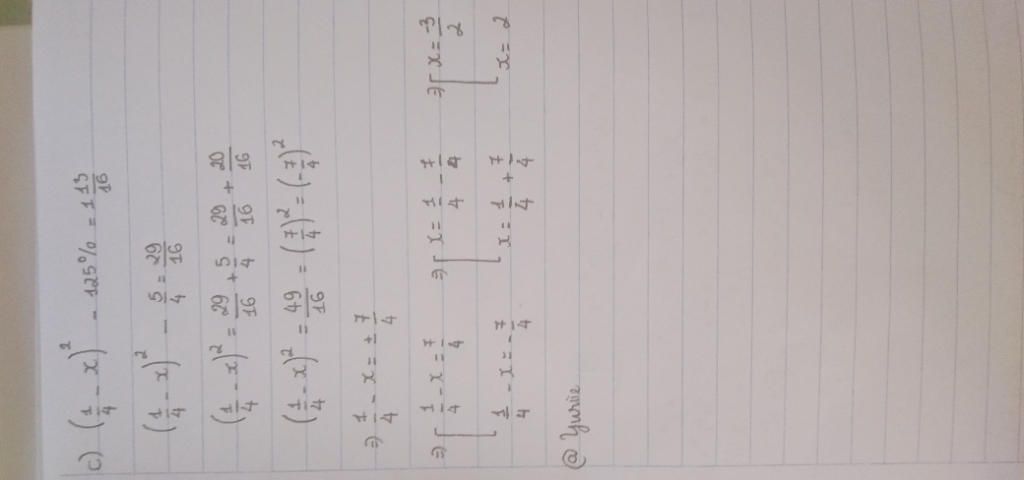 c) (1/4 - x)² - 125% = 1 13/16
(1/4 - x)² - 5/4 = 29/16
(1/4 - x)² = 29/16 + 5/4 = 29/16 + 20/16
(1/4 - x)² = 49/16 = (7/4)² = (-7/4)²
⇒ 1/4 - x = ± 7/4
⇒ [ 1/4 - x = 7/4 ⇒ [ x = 1/4 - 7/4 ⇒ [ x = -3/2
1/4 - x = - 7/4 x = 1/4 + 7/4 x = 2
@Yuriie